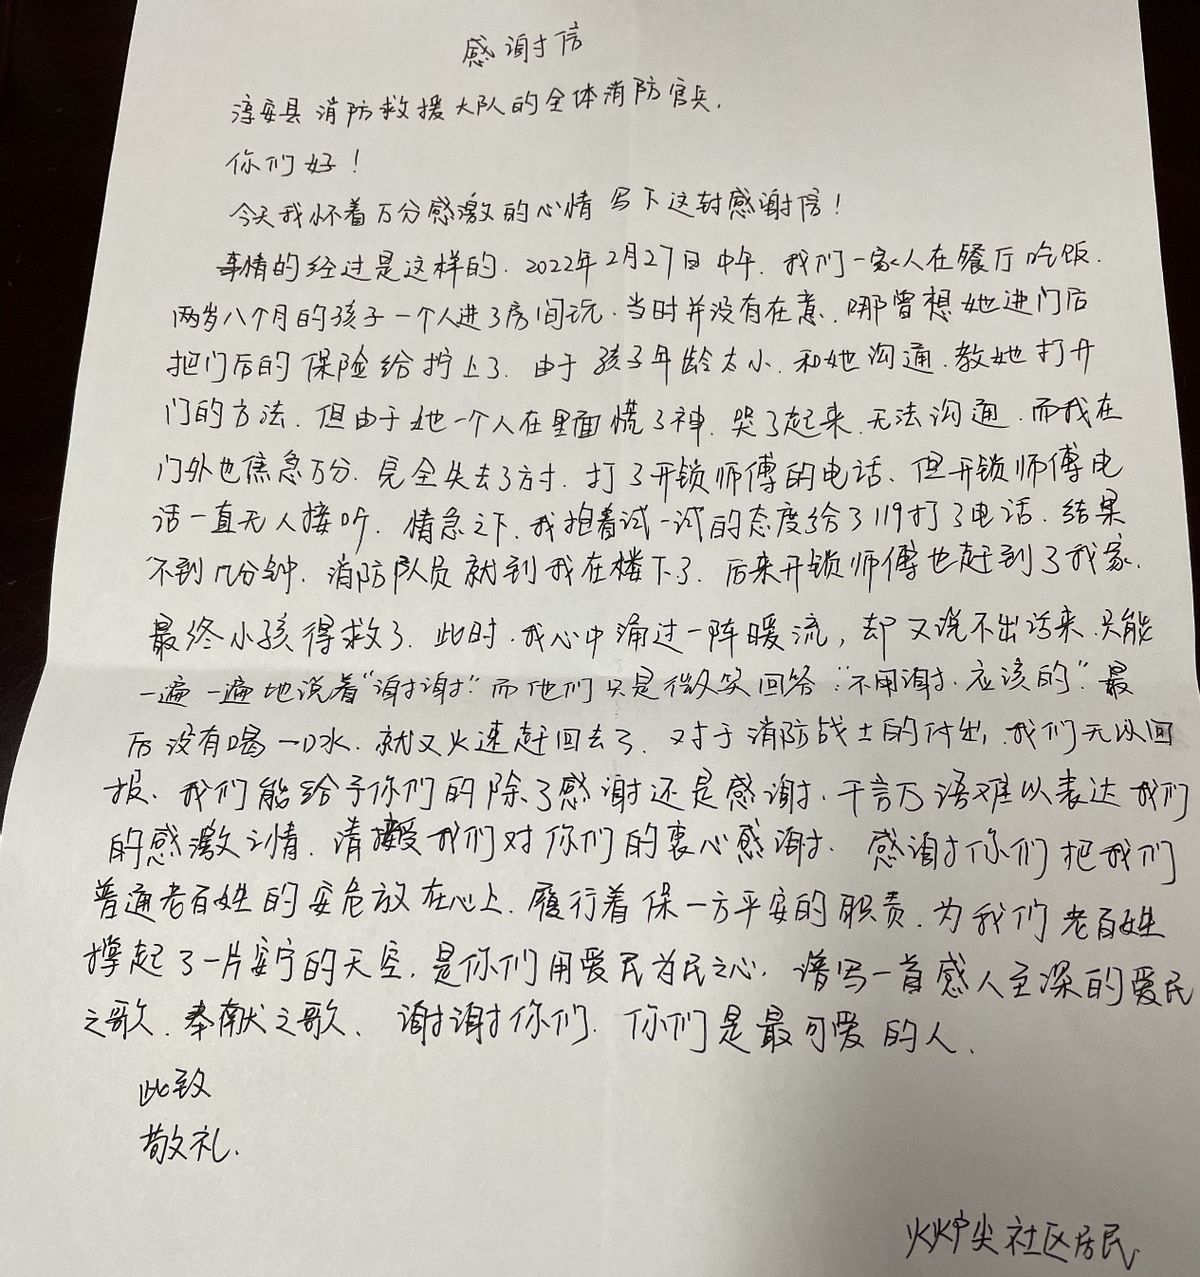 感谢信
淳安县消防救援大队的全体消防官兵.
你们好!
今天我怀着万分感激的心情写下这封感谢信!
事情的经过是这样的.2022年2月27日中午.我们一家人在餐厅吃饭.
两岁八个月的孩子一个人进了房间玩.当时并没有在意.哪曾想她进门后
把门后的保险给拧上了.由于孩子年龄太小.和她沟通.教她打开
门的方法.但由于她一个人在里面慌了神.哭了起来.无法沟通.而我在
门外也焦急万分.完全失去了方寸.打了开锁师傅的电话.但开锁师傅电
话一直无人接听.情急之下.我抱着试一试的态度给了119打了电话.结果
不到几分钟.消防队员就到我在楼下了.后来开锁师傅也赶到了我家.
最终小孩得救了.此时.我心中涌过一阵暖流,却又说不出话来.只能
一遍一遍地说着"谢谢"而他们只是微笑回答:"不用谢.应该的".最
后没有喝一口水.就又火速赶回去了.对于消防战士的付出,我们无以回
报.我们能给予你们的除了感谢还是感谢.千言万语难以表达我们
的感激之情.请接受我们对你们的衷心感谢.感谢你们把我们
普通老百姓的安危放在心上.履行着保一方平安的职责.为我们老百姓
撑起了一片安宁的天空.是你们用爱民为民之心.谱写一首感人至深的爱民
之歌.奉献之歌.谢谢你们.你们是最可爱的人.
此致
敬礼.
火炉尖社区居民